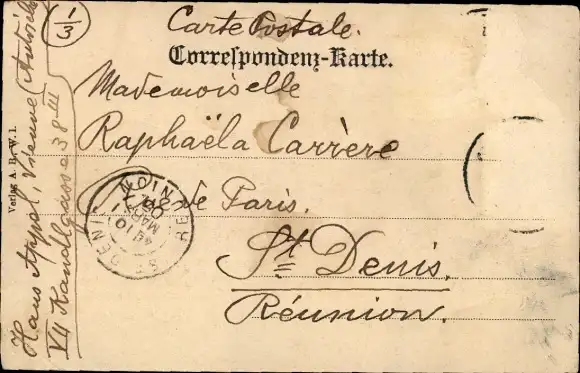 1/3
Carte Postale.
Correspondenz-Karte.
Mademoiselle
Raphaëla Carrère
Rue de Paris.
St Denis.
Réunion.
Verlag A. B. W. I.
Hans Appol, Vienne (Autriche
VII Kandlgasse 38 III
ST DENIS RÉUNION